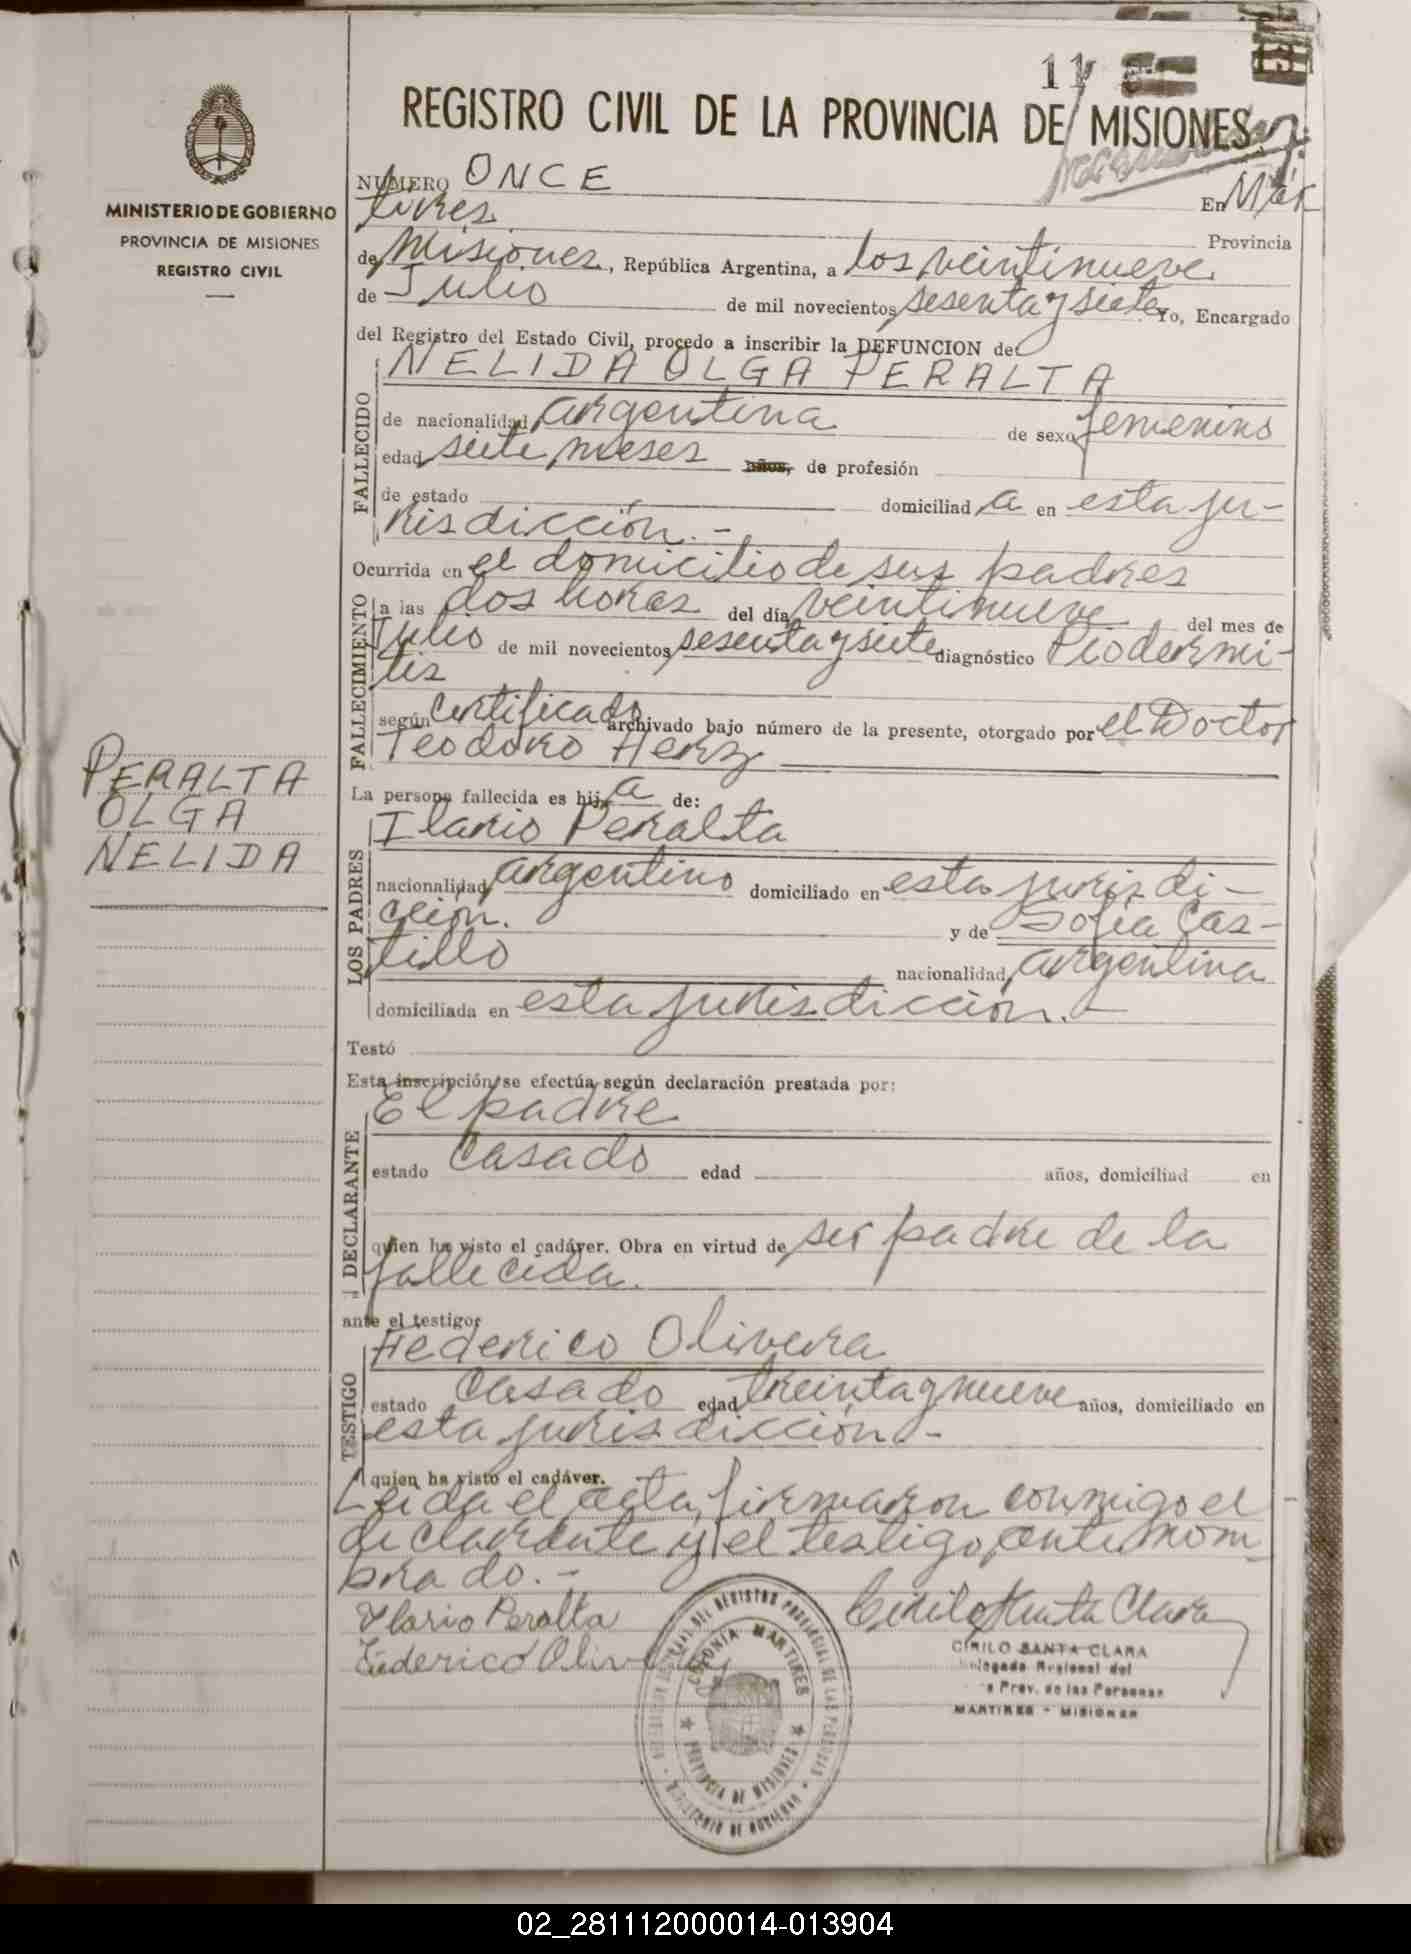 11
REGISTRO CIVIL DE LA PROVINCIA DE MISIONES
MINISTERIO DE GOBIERNO
PROVINCIA DE MISIONES
REGISTRO CIVIL
NUMERO ONCE
En Már
tires Provincia
de Misiones, República Argentina, a los veintinueve
de Julio de mil novecientos sesenta y siete Yo, Encargado
del Registro del Estado Civil, procedo a inscribir la DEFUNCION de:
FALLECIDO
NELIDA OLGA PERALTA
de nacionalidad argentina de sexo femenino
edad siete meses años, de profesión
de estado domiciliad a en esta ju-
risdicción.-
Ocurrida en el domicilio de sus padres
FALLECIMIENTO
a las dos horas del día veintinueve del mes de
Julio de mil novecientos sesenta y siete diagnóstico Piodermi-
tis
según Certificado archivado bajo número de la presente, otorgado por el Doctor
Teodoro Herz
PERALTA
OLGA
NELIDA
La persona fallecida es hij a de:
LOS PADRES
Ilario Peralta
nacionalidad argentino domiciliado en esta jurisdi-
cción. y de Sofía Cas-
tillo nacionalidad argentina
domiciliada en esta jurisdicción.-
Testó
Esta inscripción se efectúa según declaración prestada por:
DECLARANTE
El padre
estado Casado edad años, domiciliad en
quien ha visto el cadáver. Obra en virtud de ser padre de la
fallecida.
ante el testigo:
TESTIGO
Federico Olivera
estado Casado edad treinta y nueve años, domiciliado en
esta jurisdicción.-
quien ha visto el cadáver.
Leida el acta, firmaron conmigo el
declarante y el testigo, antenom-
brado.-
Ylario Peralta
Federico Olivera
Cirilo Santa Clara
CIRILO SANTA CLARA
Delegado Regional del
Prov. de las Personas
MARTIRES - MISIONES
COLONIA MARTIRES
PROVINCIA DE MISIONES
MINISTERIO DE GOBIERNO
REGISTRO PROVINCIAL DE LAS PERSONAS
02_281112000014-013904